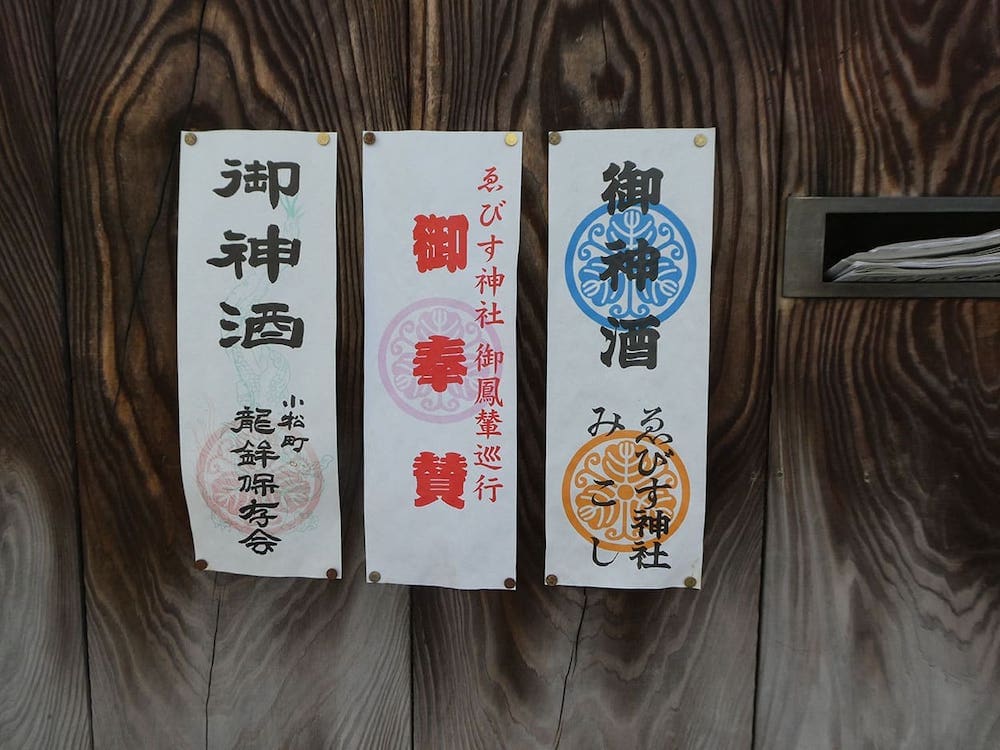 御神酒
小松町
龍鉾保存会
ゑびす神社 御鳳輦巡行
御奉賛
御神酒
ゑびす神社
みこし